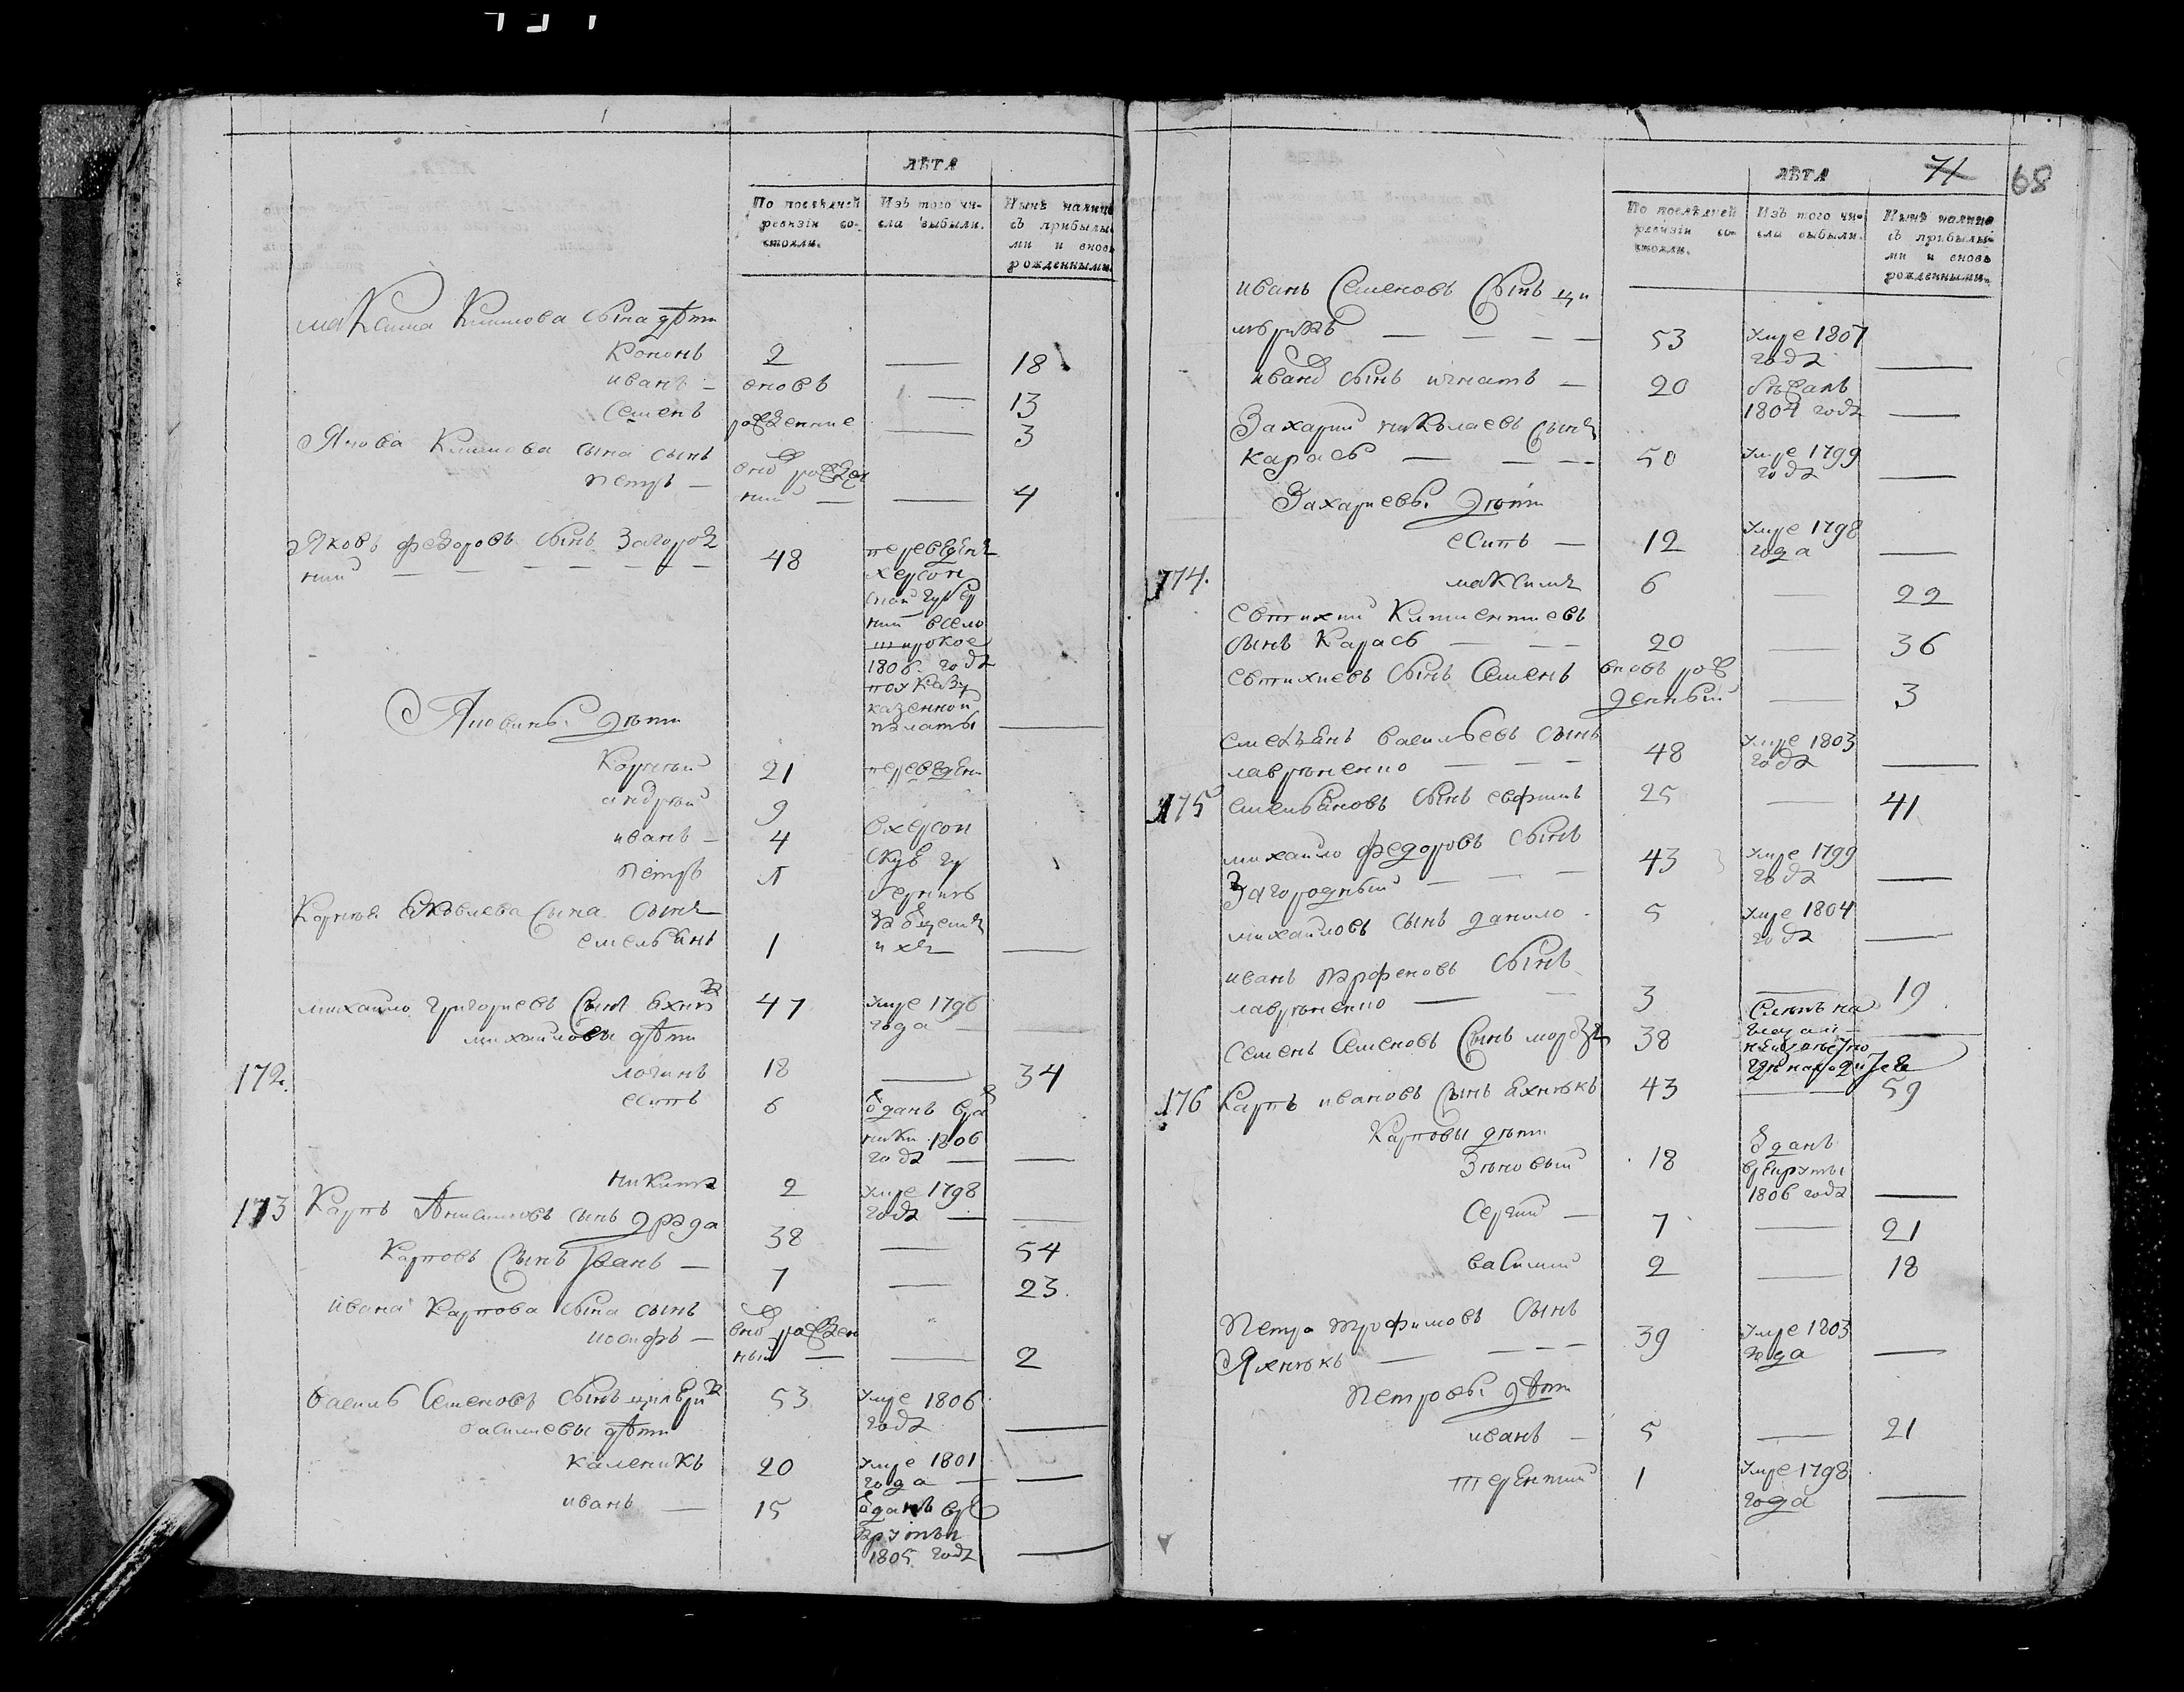 ЛѢТА
По послѣдней ревизіи состояли.
Изъ того числа выбыли.
Нынѣ налицо съ прибылыми и вновь рожденными.
максима климова сына дѣти
кононъ 2 — 18
иванъ — вновь — 13
семенъ рожденние — 3
Якова климова сына сынъ
петръ — вно рожден
ний — — 4
Яковъ федоровъ сынъ Загород
ний — — — — — — 48
переведенъ
херсон
ской губер
нии в село
широкое
1806 года
по указу
казенной
палаты —
Яковины дѣти
Корнѣй 21 переведени
андрѣй 9
иванъ — 4 в херсон
петръ скую гу
бернию
Корнѣя Яковлева сына сынъ
емельянъ 1 —
михайло григориевъ сынъ 47 умре 1796
года — —
михайловы дѣти
172. логинъ 18 — 34
есипъ 6
1806
года — —
никита 2 умре 1798
года — —
173 Карпъ Анисимовъ сынъ
38 — 54
Карповъ сынъ Іванъ — 7 — 23.
ивана Карпова сына сынъ
иосифъ — вно рожден
ный — — 2
василь семеновъ сынъ 53 умре 1806
года —
василиевы дѣти
каленикъ 20 умре 1801
года — —
иванъ — 15 ѿданъ в ре
круты
1805 года —
ЛѢТА
71
68
По послѣдней ревизіи состояли.
Изъ того числа выбыли.
Нынѣ налицо съ прибылыми и вновь рожденными.
иванъ семеновъ сынъ ци
мбрикъ — — — — 53 умре 1807
года —
иванѡ сынъ игнатъ — 20 бѣжалъ
1804 года —
Захарий николаевъ сынъ
карась — — — 50 умре 1799
года —
Захариевы дѣти
есипъ — 12 умре 1798
года —
174. максимъ 6 — 22
евтихий климентиевъ
сынъ карась — — 20 — 36
евтихиевъ сынъ семенъ вновь рож
денный — 3
емельянъ васильевъ сынъ
лаврѣненко — — — 48 умре 1803
года —
175 емельяновъ сынъ евфимъ 25 — 41
михайло федоровъ сынъ
Загородный — — — 43 умре 1799
года —
михайловъ сынъ данило — 5 умре 1804
года —
иванъ парфеновъ сынъ
лаврѣненко — — 3 — 19
семенъ семеновъ сынъ 38 —
176 карпъ ивановъ сынъ яхнѣкъ 43 — 59
карповы дѣти
Зѣновый 18 ѿданъ
в рекруты
1806 года —
сергий — 7 — 21
василий 2 — 18
петра трофимовъ сынъ
Яхнѣкъ — — — — 39 умре 1803
года —
петровы дѣти
иванъ — 5 — 21
терентий 1 умре 1798
года —